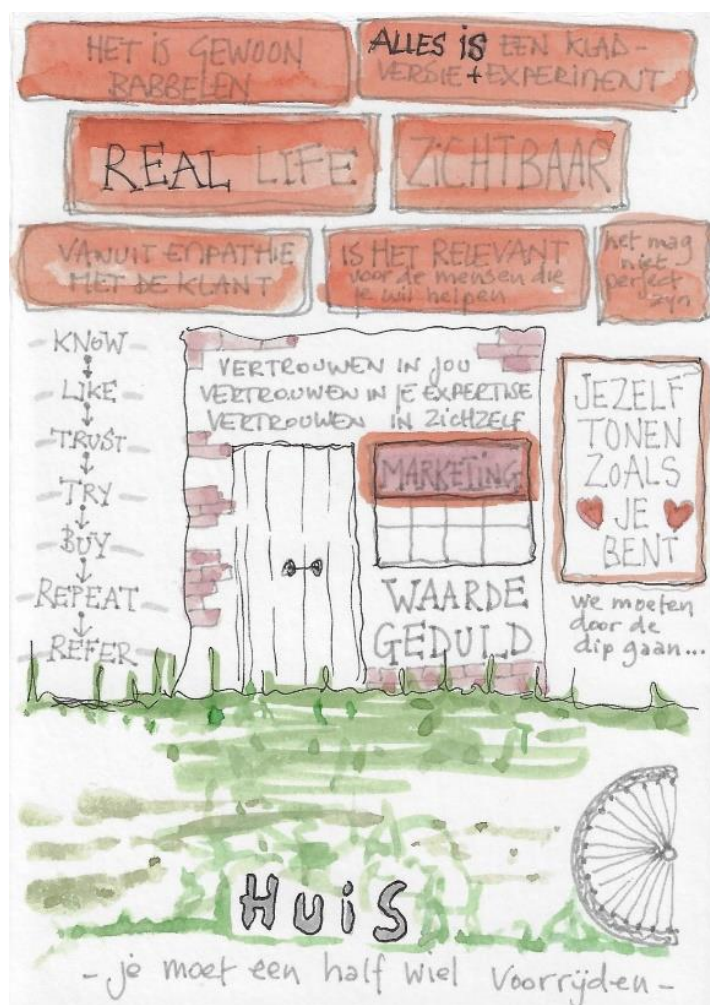 HET IS GEWOON
BABBELEN
ALLES IS EEN KLAD-
VERSIE + EXPERIMENT
REAL LIFE
ZICHTBAAR
VANUIT EMPATHIE
MET DE KLANT
IS HET RELEVANT
voor de mensen die
je wil helpen
het mag
niet
perfect
zyn
KNOW
LIKE
TRUST
TRY
BUY
REPEAT
REFER
VERTROUWEN IN JOU
VERTROUWEN IN JE EXPERTISE
VERTROUWEN IN ZICHZELF
MARKETING
WAARDE
GEDULD
JEZELF
TONEN
ZOALS
JE
BENT
we moeten
door de
dip gaan...
HUiS
- je moet een half wiel voorrijden -